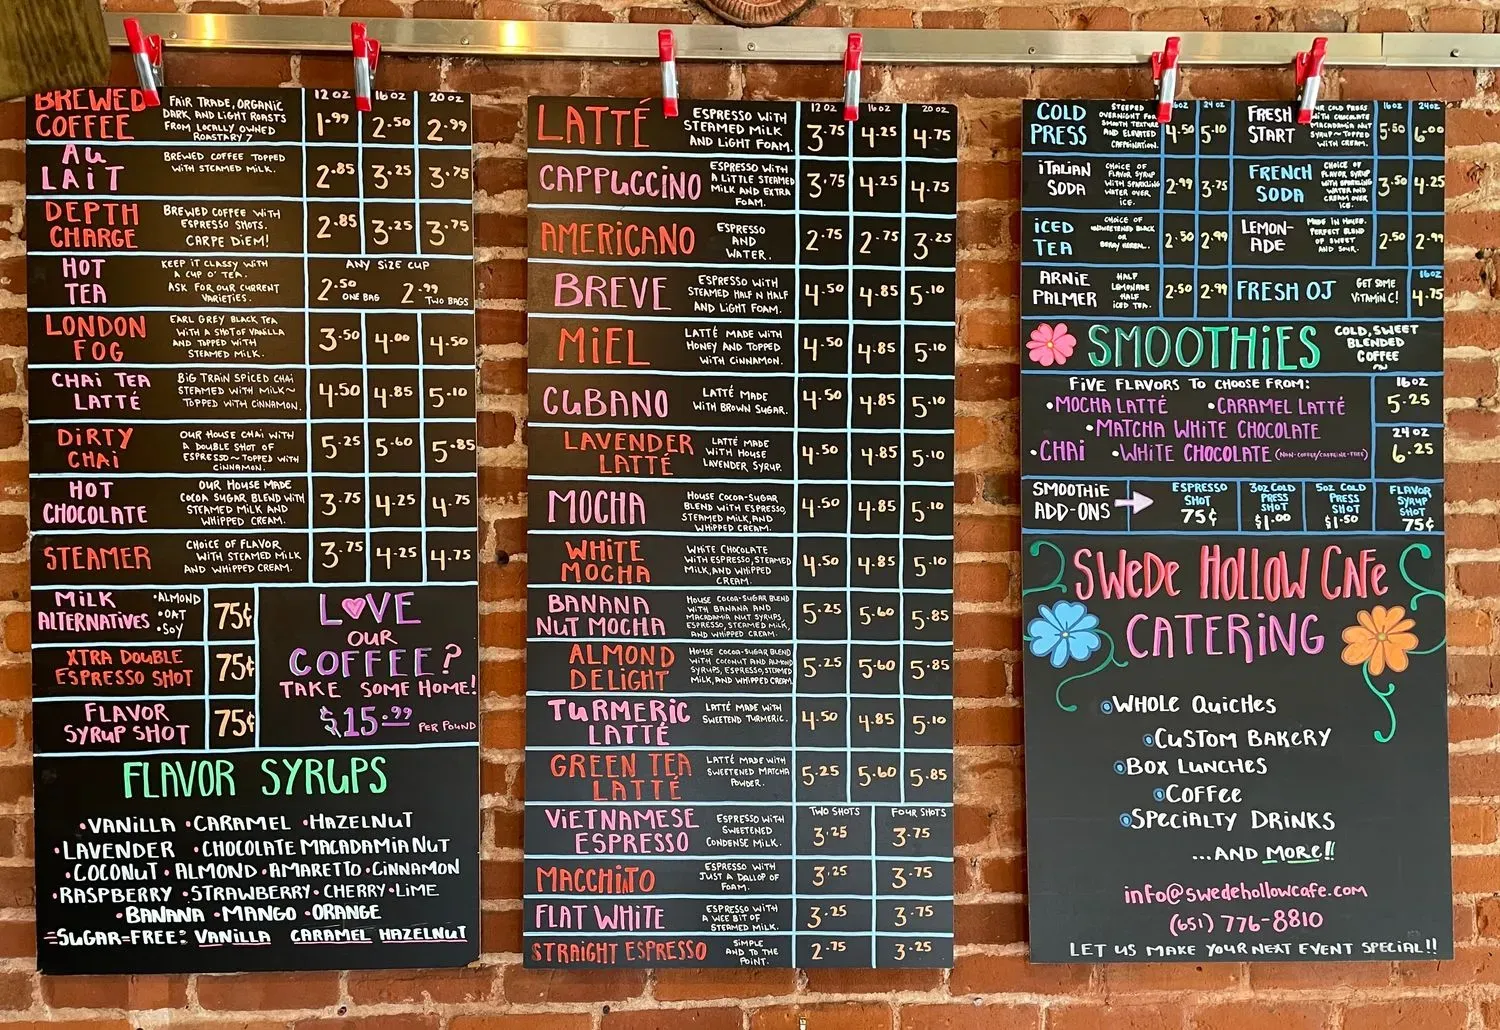 BREWED COFFEE
FAIR TRADE, ORGANIC
DARK AND LIGHT ROASTS
FROM LOCALLY OWNED
ROASTARY 7
12 OZ 16 OZ 20 OZ
1.99 2.50 2.99
AU LAIT
BREWED COFFEE TOPPED
WITH STEAMED MILK.
2.85 3.25 3.75
DEPTH CHARGE
BREWED COFFEE WITH
ESPRESSO SHOTS.
CARPE DIEM!
2.85 3.25 3.75
HOT TEA
KEEP IT CLASSY WITH
A CUP O' TEA.
ASK FOR OUR CURRENT
VARIETIES.
ANY SIZE CUP
2.50 ONE BAG 2.99 TWO BAGS
LONDON FOG
EARL GREY BLACK TEA
WITH A SHOT OF VANILLA
AND TOPPED WITH
STEAMED MILK.
3.50 4.00 4.50
CHAI TEA LATTÉ
BIG TRAIN SPICED CHAI
STEAMED WITH MILK~
TOPPED WITH CINNAMON.
4.50 4.85 5.10
DIRTY CHAI
OUR HOUSE CHAI WITH
A DOUBLE SHOT OF
ESPRESSO~TOPPED WITH
CINNAMON.
5.25 5.60 5.85
HOT CHOCOLATE
OUR HOUSE MADE
COCOA SUGAR BLEND WITH
STEAMED MILK AND
WHIPPED CREAM.
3.75 4.25 4.75
STEAMER
CHOICE OF FLAVOR
WITH STEAMED MILK
AND WHIPPED CREAM.
3.75 4.25 4.75
MILK ALTERNATIVES
•ALMOND
•OAT
•SOY
75¢
XTRA DOUBLE
ESPRESSO SHOT
75¢
FLAVOR
SYRUP SHOT
75¢
LOVE
OUR
COFFEE?
TAKE SOME HOME!
$15.99 PER POUND
FLAVOR SYRUPS
•VANILLA •CARAMEL •HAZELNUT
•LAVENDER •CHOCOLATE MACADAMIA NUT
•COCONUT •ALMOND •AMARETTO •CINNAMON
•RASPBERRY •STRAWBERRY •CHERRY •LIME
•BANANA •MANGO •ORANGE
=SUGAR=FREE: VANILLA CARAMEL HAZELNUT
LATTÉ
ESPRESSO WITH
STEAMED MILK
AND LIGHT FOAM.
12 OZ 16 OZ 20 OZ
3.75 4.25 4.75
CAPPUCCINO
ESPRESSO WITH
A LITTLE STEAMED
MILK AND EXTRA
FOAM.
3.75 4.25 4.75
AMERICANO
ESPRESSO
AND
WATER.
2.75 2.75 3.25
BREVE
ESPRESSO WITH
STEAMED HALF N HALF
AND LIGHT FOAM.
4.50 4.85 5.10
MIEL
LATTÉ MADE WITH
HONEY AND TOPPED
WITH CINNAMON.
4.50 4.85 5.10
CUBANO
LATTÉ MADE
WITH BROWN SUGAR.
4.50 4.85 5.10
LAVENDER LATTÉ
LATTÉ MADE
WITH HOUSE
LAVENDER SYRUP.
4.50 4.85 5.10
MOCHA
HOUSE COCOA-SUGAR
BLEND WITH ESPRESSO,
STEAMED MILK, AND
WHIPPED CREAM.
4.50 4.85 5.10
WHITE MOCHA
WHITE CHOCOLATE
WITH ESPRESSO, STEAMED
MILK, AND WHIPPED
CREAM.
4.50 4.85 5.10
BANANA NUT MOCHA
HOUSE COCOA-SUGAR BLEND
WITH BANANA AND
MACADAMIA NUT SYRUPS,
ESPRESSO, STEAMED MILK,
AND WHIPPED CREAM.
5.25 5.60 5.85
ALMOND DELIGHT
HOUSE COCOA-SUGAR BLEND
WITH COCONUT AND ALMOND
SYRUPS, ESPRESSO, STEAMED
MILK, AND WHIPPED CREAM.
5.25 5.60 5.85
TURMERIC LATTÉ
LATTÉ MADE WITH
SWEETEND TURMERIC.
4.50 4.85 5.10
GREEN TEA LATTÉ
LATTÉ MADE WITH
SWEETENED MATCHA
POWDER.
5.25 5.60 5.85
VIETNAMESE ESPRESSO
ESPRESSO WITH
SWEETENED
CONDENSE MILK.
TWO SHOTS FOUR SHOTS
3.25 3.75
MACCHIATO
ESPRESSO WITH
JUST A DALLOP OF
FOAM.
3.25 3.75
FLAT WHITE
ESPRESSO WITH
A WEE BIT OF
STEAMED MILK.
3.25 3.75
STRAIGHT ESPRESSO
SIMPLE
AND TO THE
POINT.
2.75 3.25
COLD PRESS
STEEPED
OVERNIGHT FOR
SMOOTH TEXTURE
AND ELEVATED
CAFFEINATION.
16OZ 24 OZ
4.50 5.10
FRESH START
OUR COLD PRESS
WITH CHOCOLATE
MACADAMIA NUT
SYRUP~TOPPED
WITH CREAM.
16OZ 24OZ
5.50 6.00
ITALIAN SODA
CHOICE OF
FLAVOR SYRUP
WITH SPARKLING
WATER OVER
ICE.
2.99 3.75
FRENCH SODA
CHOICE OF
FLAVOR SYRUP
WITH SPARKLING
WATER AND
CREAM OVER
ICE.
3.50 4.25
ICED TEA
CHOICE OF
UNSWEETENED BLACK
OR
BERRY
2.50 2.99
LEMON-ADE
MADE IN HOUSE.
PERFECT BLEND
OF SWEET
AND SOUR.
2.50 2.99
ARNIE PALMER
HALF
LEMONADE
HALF
ICED TEA.
2.50 2.99
FRESH OJ
GET SOME
VITAMIN C!
16OZ
4.75
SMOOTHIES
COLD, SWEET
BLENDED
COFFEE
FIVE FLAVORS TO CHOOSE FROM:
•MOCHA LATTÉ •CARAMEL LATTÉ
•MATCHA WHITE CHOCOLATE
•CHAI •WHITE CHOCOLATE (NON-COFFEE/CAFFEINE-FREE)
16OZ
5.25
24 OZ
6.25
SMOOTHIE
ADD-ONS
ESPRESSO
SHOT
75¢
3OZ COLD
PRESS
SHOT
$1.00
5OZ COLD
PRESS
SHOT
$1.50
FLAVOR
SYRUP
SHOT
75¢
SWEDE HOLLOW CAFE
CATERING
WHOLE QUICHES
CUSTOM BAKERY
BOX LUNCHES
COFFEE
SPECIALTY DRINKS
...AND MORE!!
info@swedehollowcafe.com
(651) 776-8810
LET US MAKE YOUR NEXT EVENT SPECIAL!!